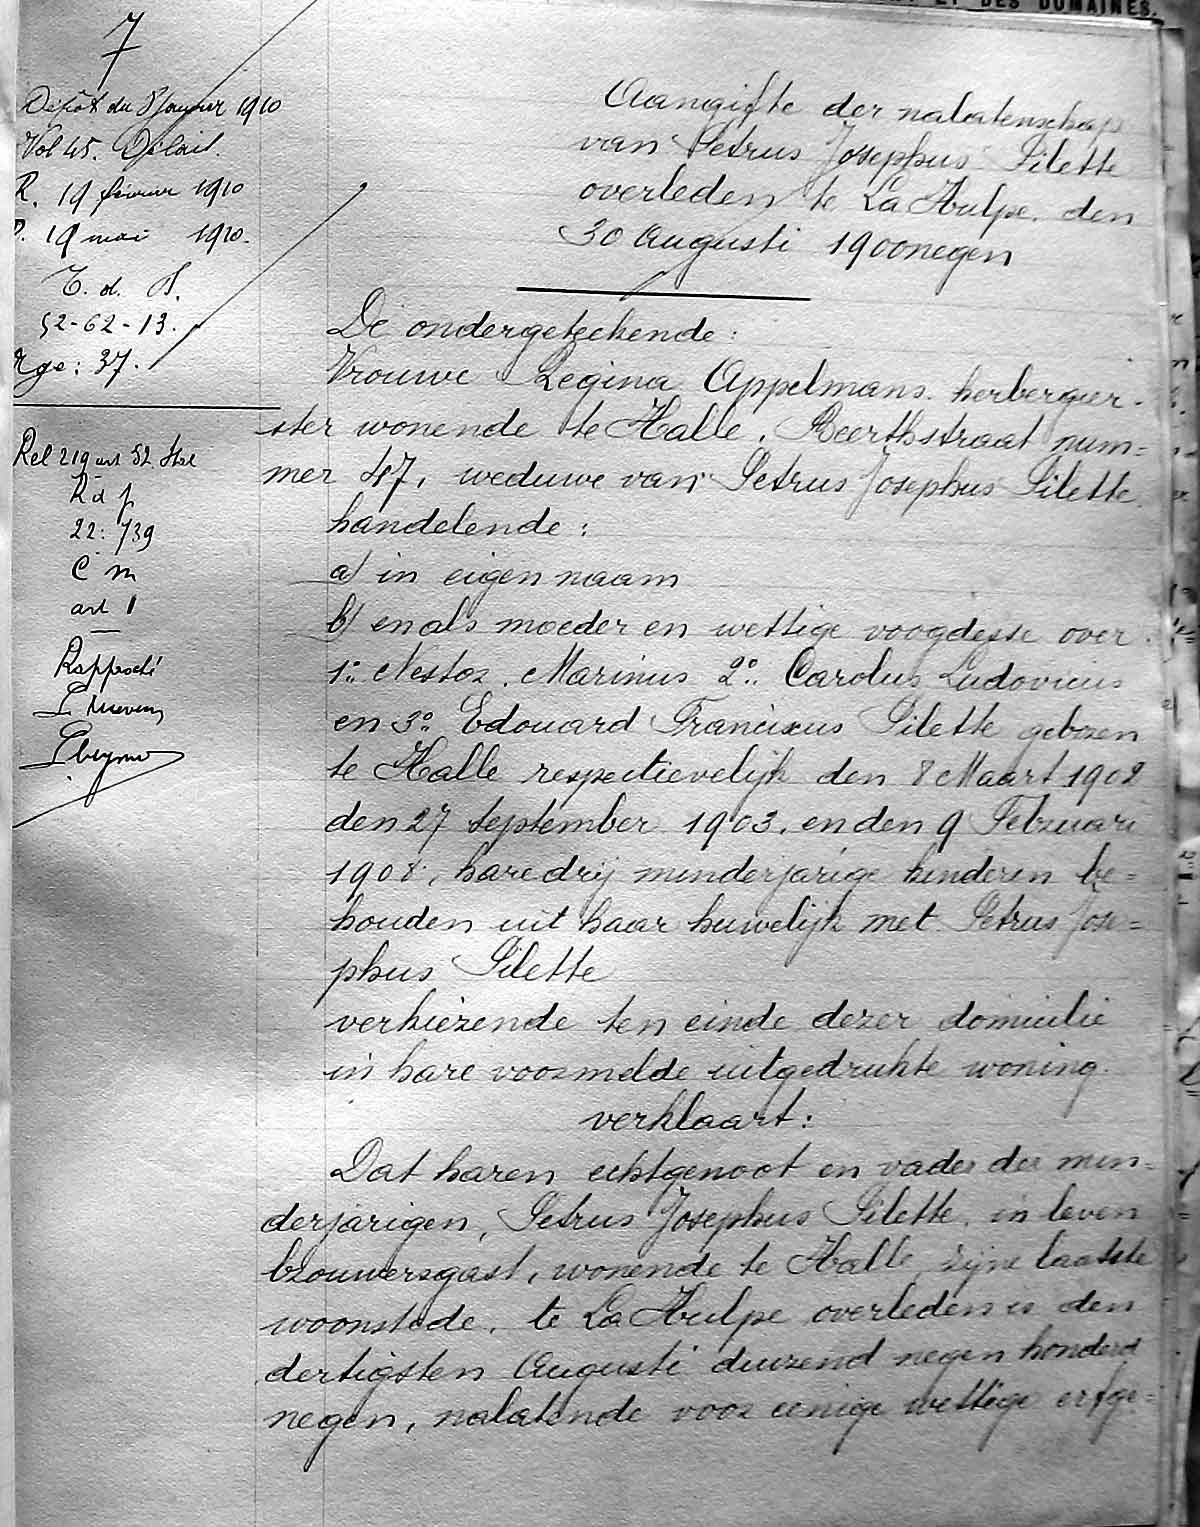 ET DES DOMAINES.
7
Dépôt du 8 Janvier 1910
Vol 45. Délai.
R. 19 février 1910
D. 19 mai 1910.
T. d. S.
52-62-13.
Rge: 37.
Rel 219 art 52
R d f
22: 739
C m
art 1
Rapproché
Aangifte der nalatenschap
van Petrus Josephus Pilette
overleden te La Hulpe. den
30 Augusti 1900negen
De ondergeteekende:
Vrouwe Regina Appelmans. herbergier-
ster wonende te Halle. Beerthstraat num=
mer 47, weduwe van Petrus Josephus Pilette.
handelende:
a) in eigen naam
b) en als moeder en wettige voogdesse over
1º. Nestor. Marinus 2º. Carolus Ludovicus
en 3º. Edouard Franciscus Pilette geboren
te Halle respectievelijk den 8 Maart 1902
den 27 September 1903. en den 9 Februari
1908, hare drij minderjarige kinderen be=
houden uit haar huwelijk met Petrus Jose=
phus Pilette
verkiezende ten einde dezer domicilie
in hare voormelde uitgedrukte woning.
verklaart:
Dat haren echtgenoot en vader der min-
derjarigen, Petrus Josephus Pilette, in leven
brouwersgast, wonende te Halle, zijne laatste
woonstede, te La Hulpe overleden is den
dertigsten Augusti duizend negen honderd
negen, nalatende voor eenige wettige erfge=